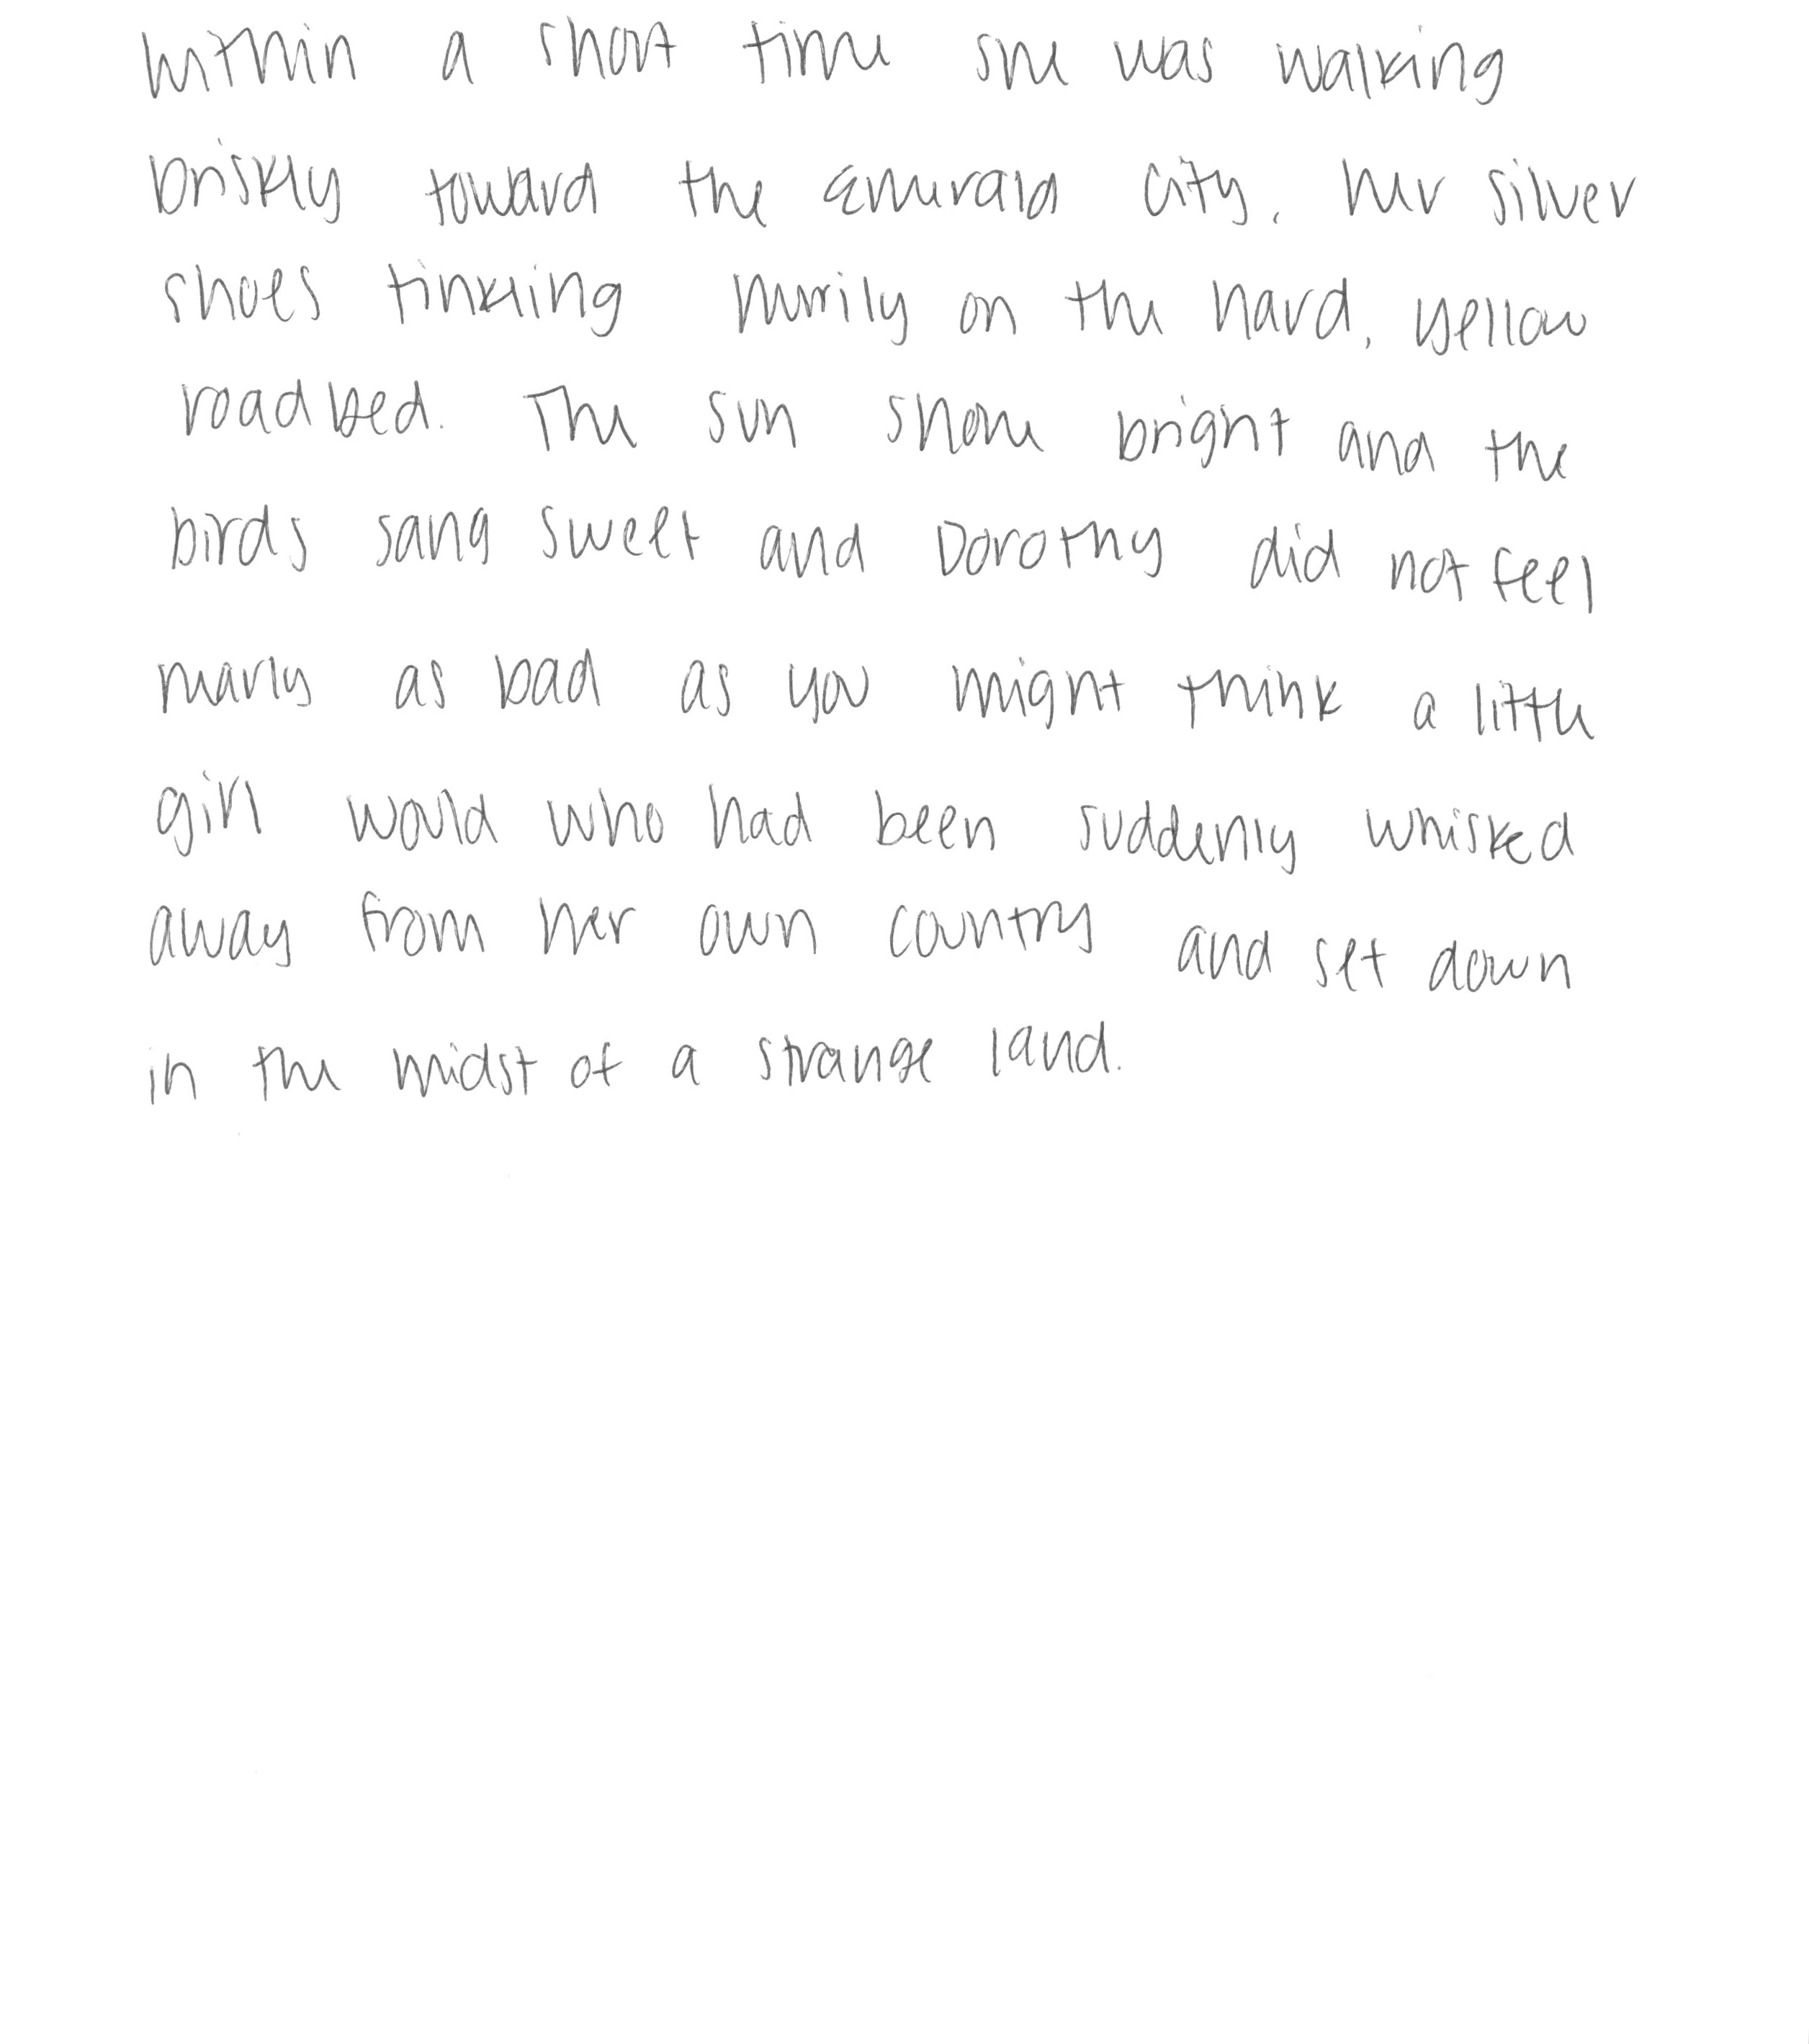 Within a short time she was walking
briskly toward the Emerald City, her silver
shoes tinkling merrily on the hard, yellow
roadbed. The sun shone bright and the
birds sang sweet and Dorothy did not feel
nearly as bad as you might think a little
girl would who had been suddenly whisked
away from her own country and set down
in the midst of a strange land.